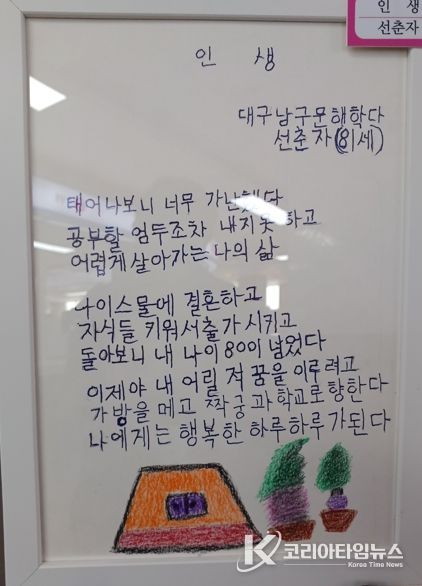 인 생
선춘자
인 생
대구남구문해학다
선춘자(81세)
태어나보니 너무 가난했다
공부할 엄두조차 내지못 하고
어렵게 살아가는 나의 삶
나이스물에 결혼하고
자식들 키워서출가 시키고
돌아보니 내 나이 80이 넘었다
이제야 내 어릴 적 꿈을 이루려고
가방을 메고 짝궁과 학교로 향한다
나에게는 행복한 하루하루가 된다
코리아타임뉴스
Korea Time News